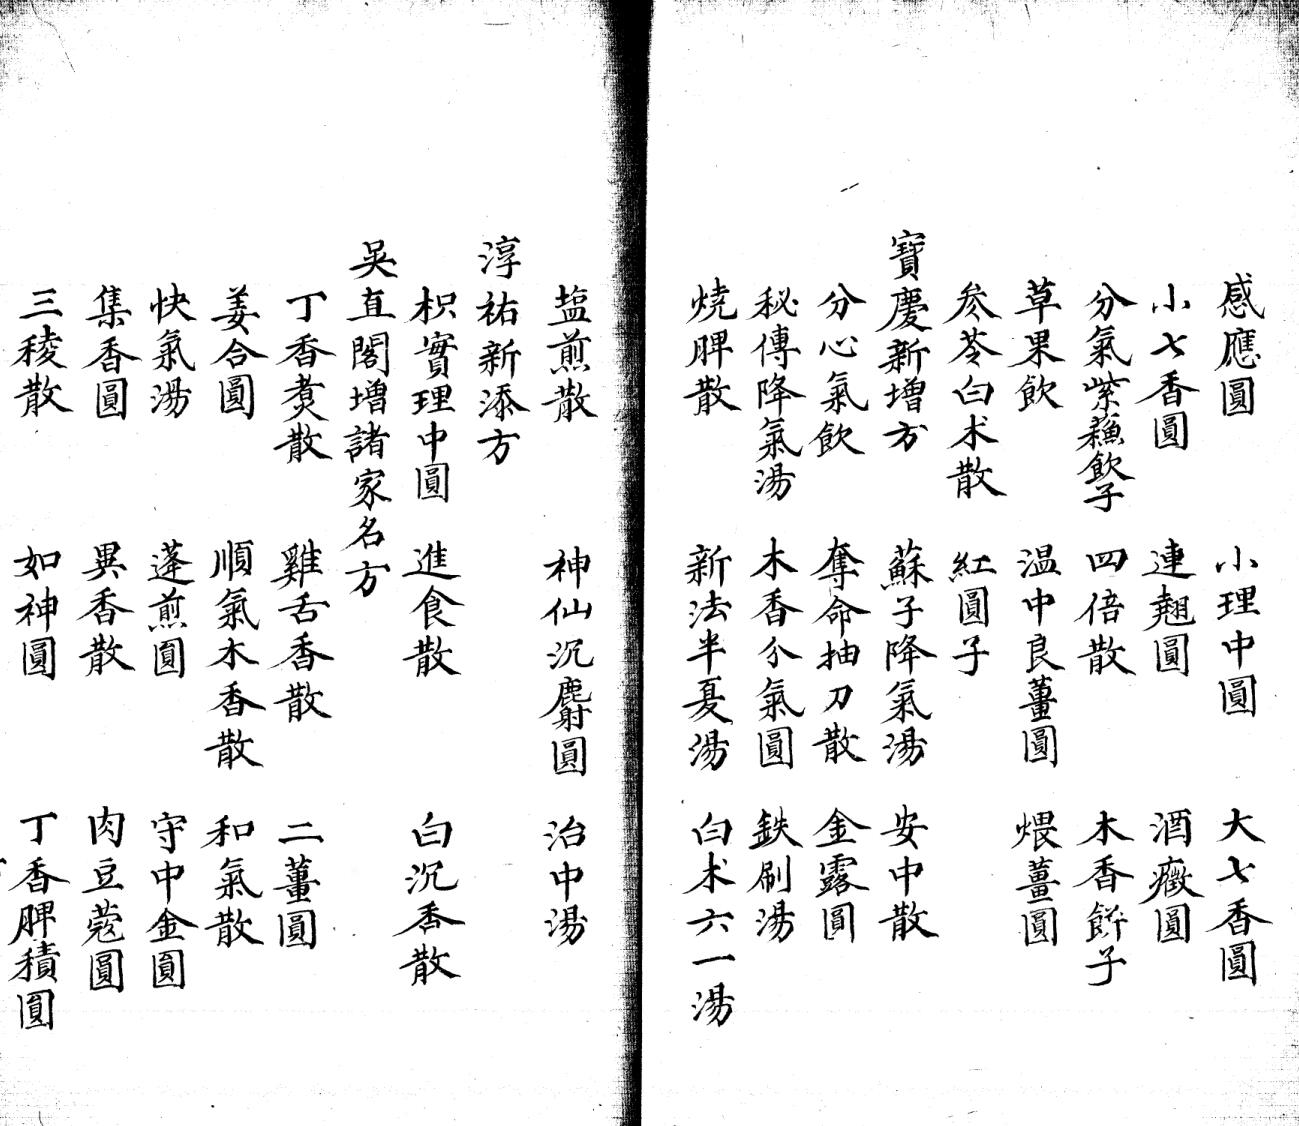 感應圓 小理中圓 大七香圓
小七香圓 連翹圓 酒癥圓
分氣紫蘓飲子 四倍散 木香餅子
草果飲 温中良薑圓 煨薑圓
參苓白术散 紅圓子
寶慶新增方 蘇子降氣湯 安中散
分心氣飲 奪命抽刀散 金露圓
秘傳降氣湯 木香分氣圓 鉄刷湯
燒脾散 新法半夏湯 白术六一湯
塩煎散 神仙沉麝圓 治中湯
淳祐新添方
枳實理中圓 進食散 白沉香散
吴直閣增諸家名方
丁香煑散 雞舌香散 二薑圓
姜合圓 順氣木香散 和氣散
快氣湯 蓬煎圓 守中金圓
集香圓 異香散 肉豆蔻圓
三稜散 如神圓 丁香脾積圓